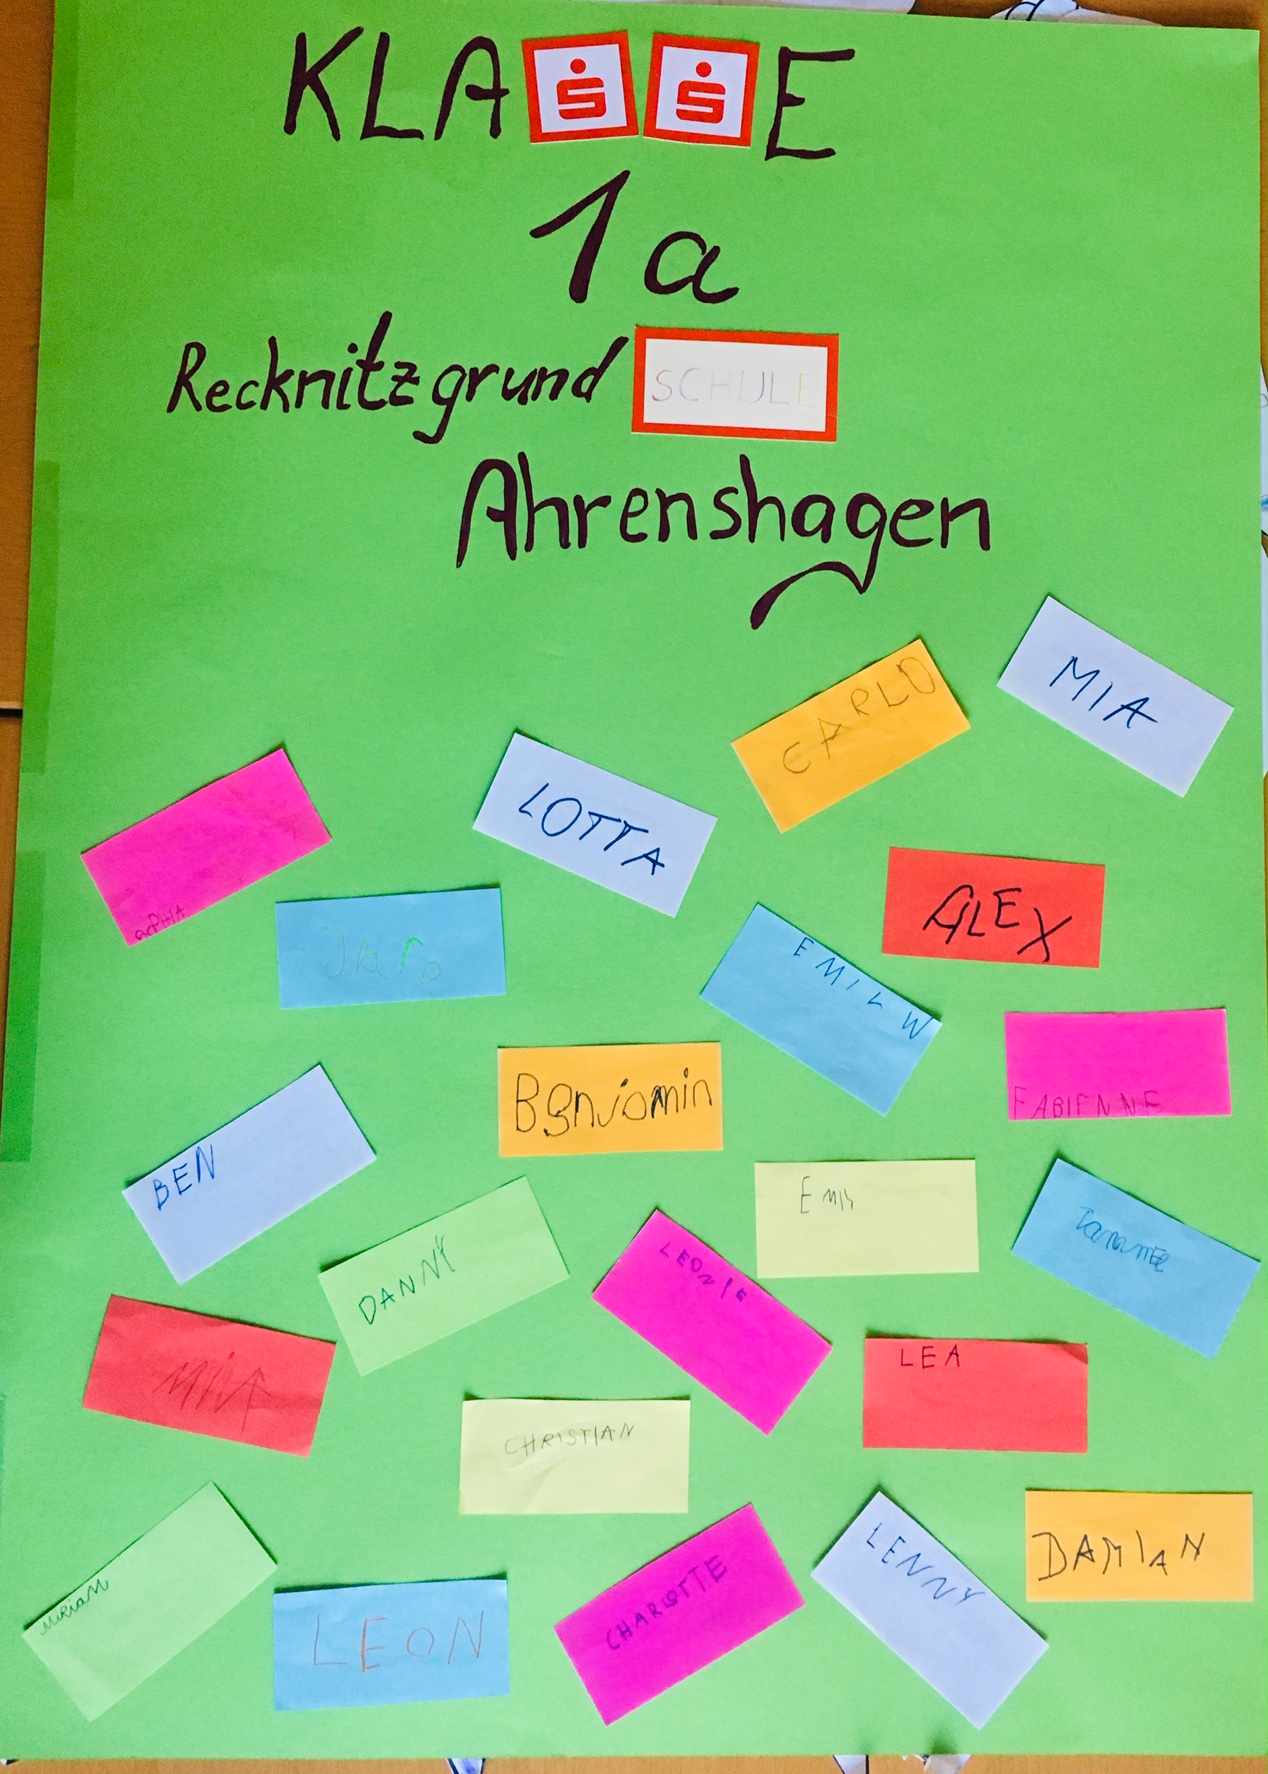 KLASSE
1a
Recknitzgrund SCHULE
Ahrenshagen
MIA
CARLO
LOTTA
ALEX
Jaro
EMIL W
Benjamin
FABIENNE
BEN
Emily
DANNY
LEONIE
MIA
LEA
CHRISTIAN
MiRiaM
LEON
CHARLOTTE
LENNY
DAMIAN